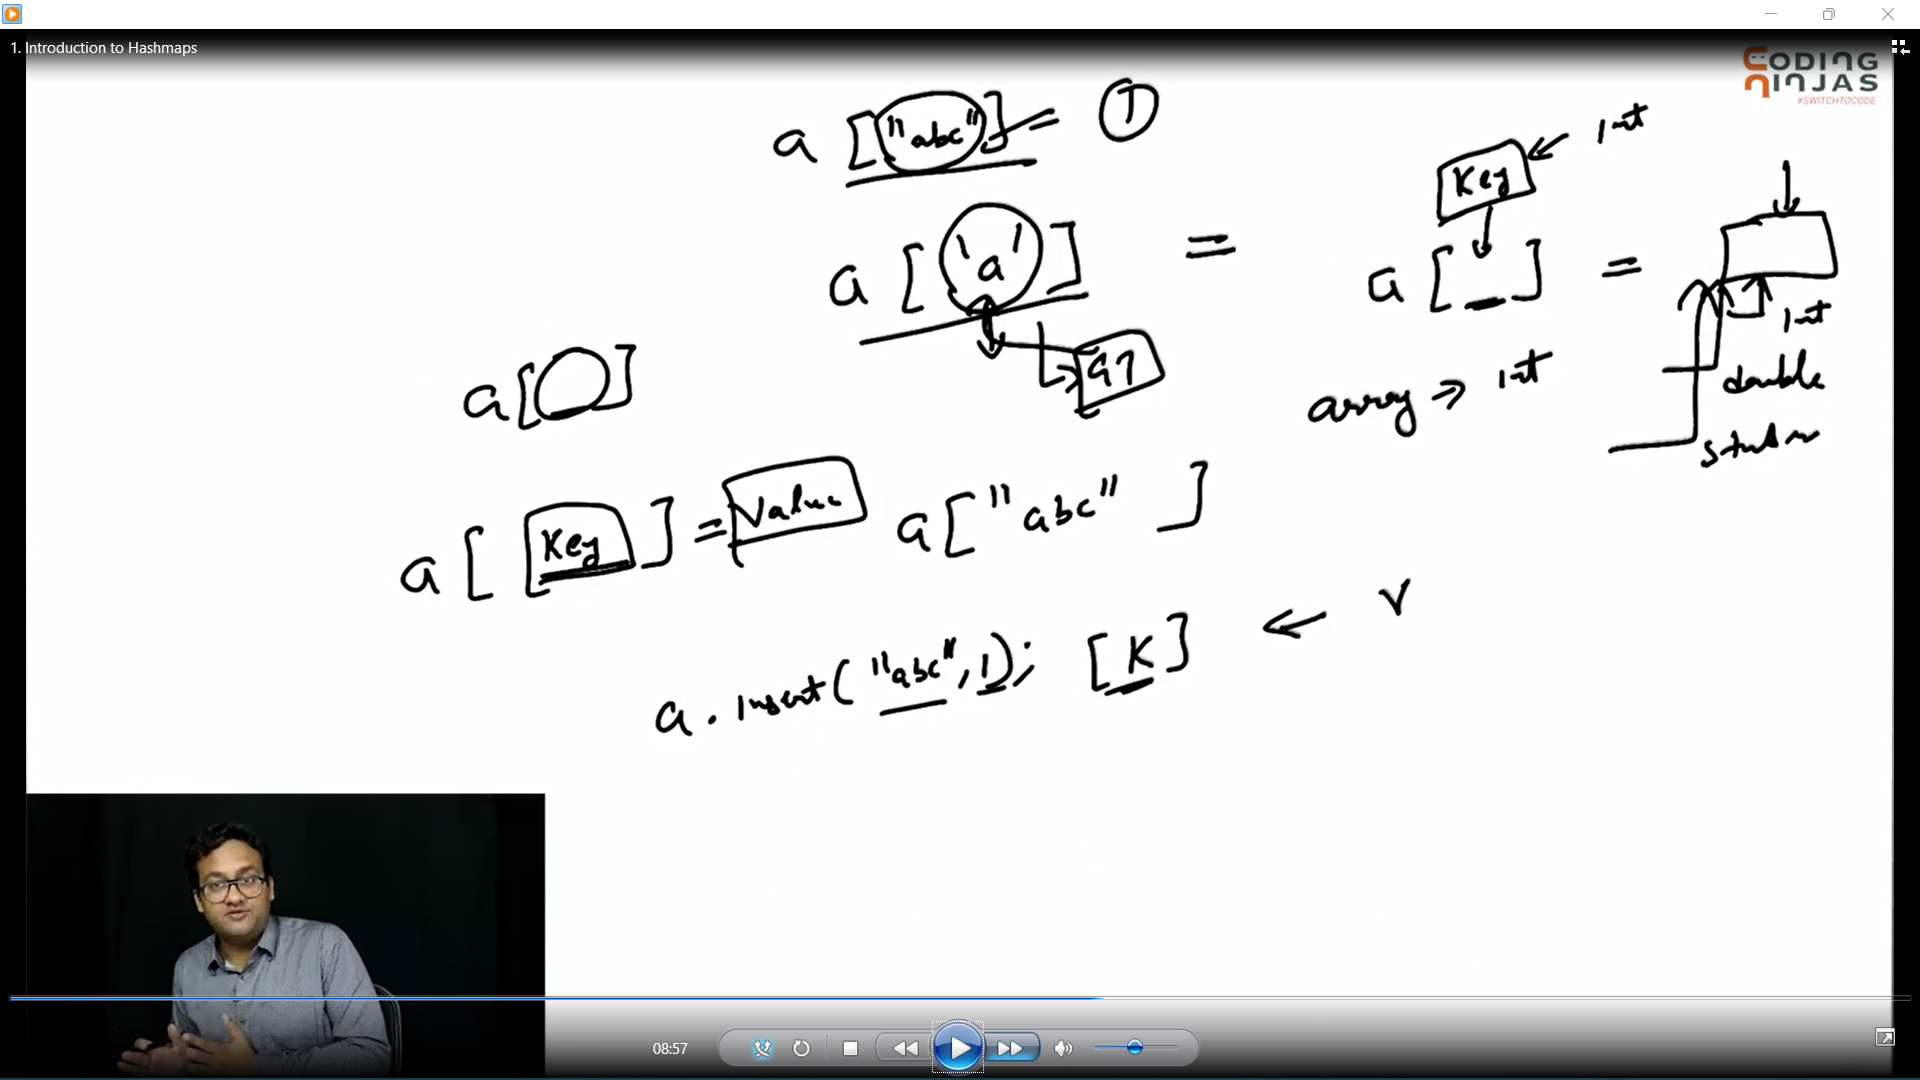 1. Introduction to Hashmaps
CODING
NINJAS
#SWITCHTOCODE
a ["abc"] = 1
a ['a'] =
97
Key ← int
a [_] =
int
double
array → int
a[ ]
a [Key] = Value
a["abc"]
a.insert("abc",1);
[K] ← V
08:57